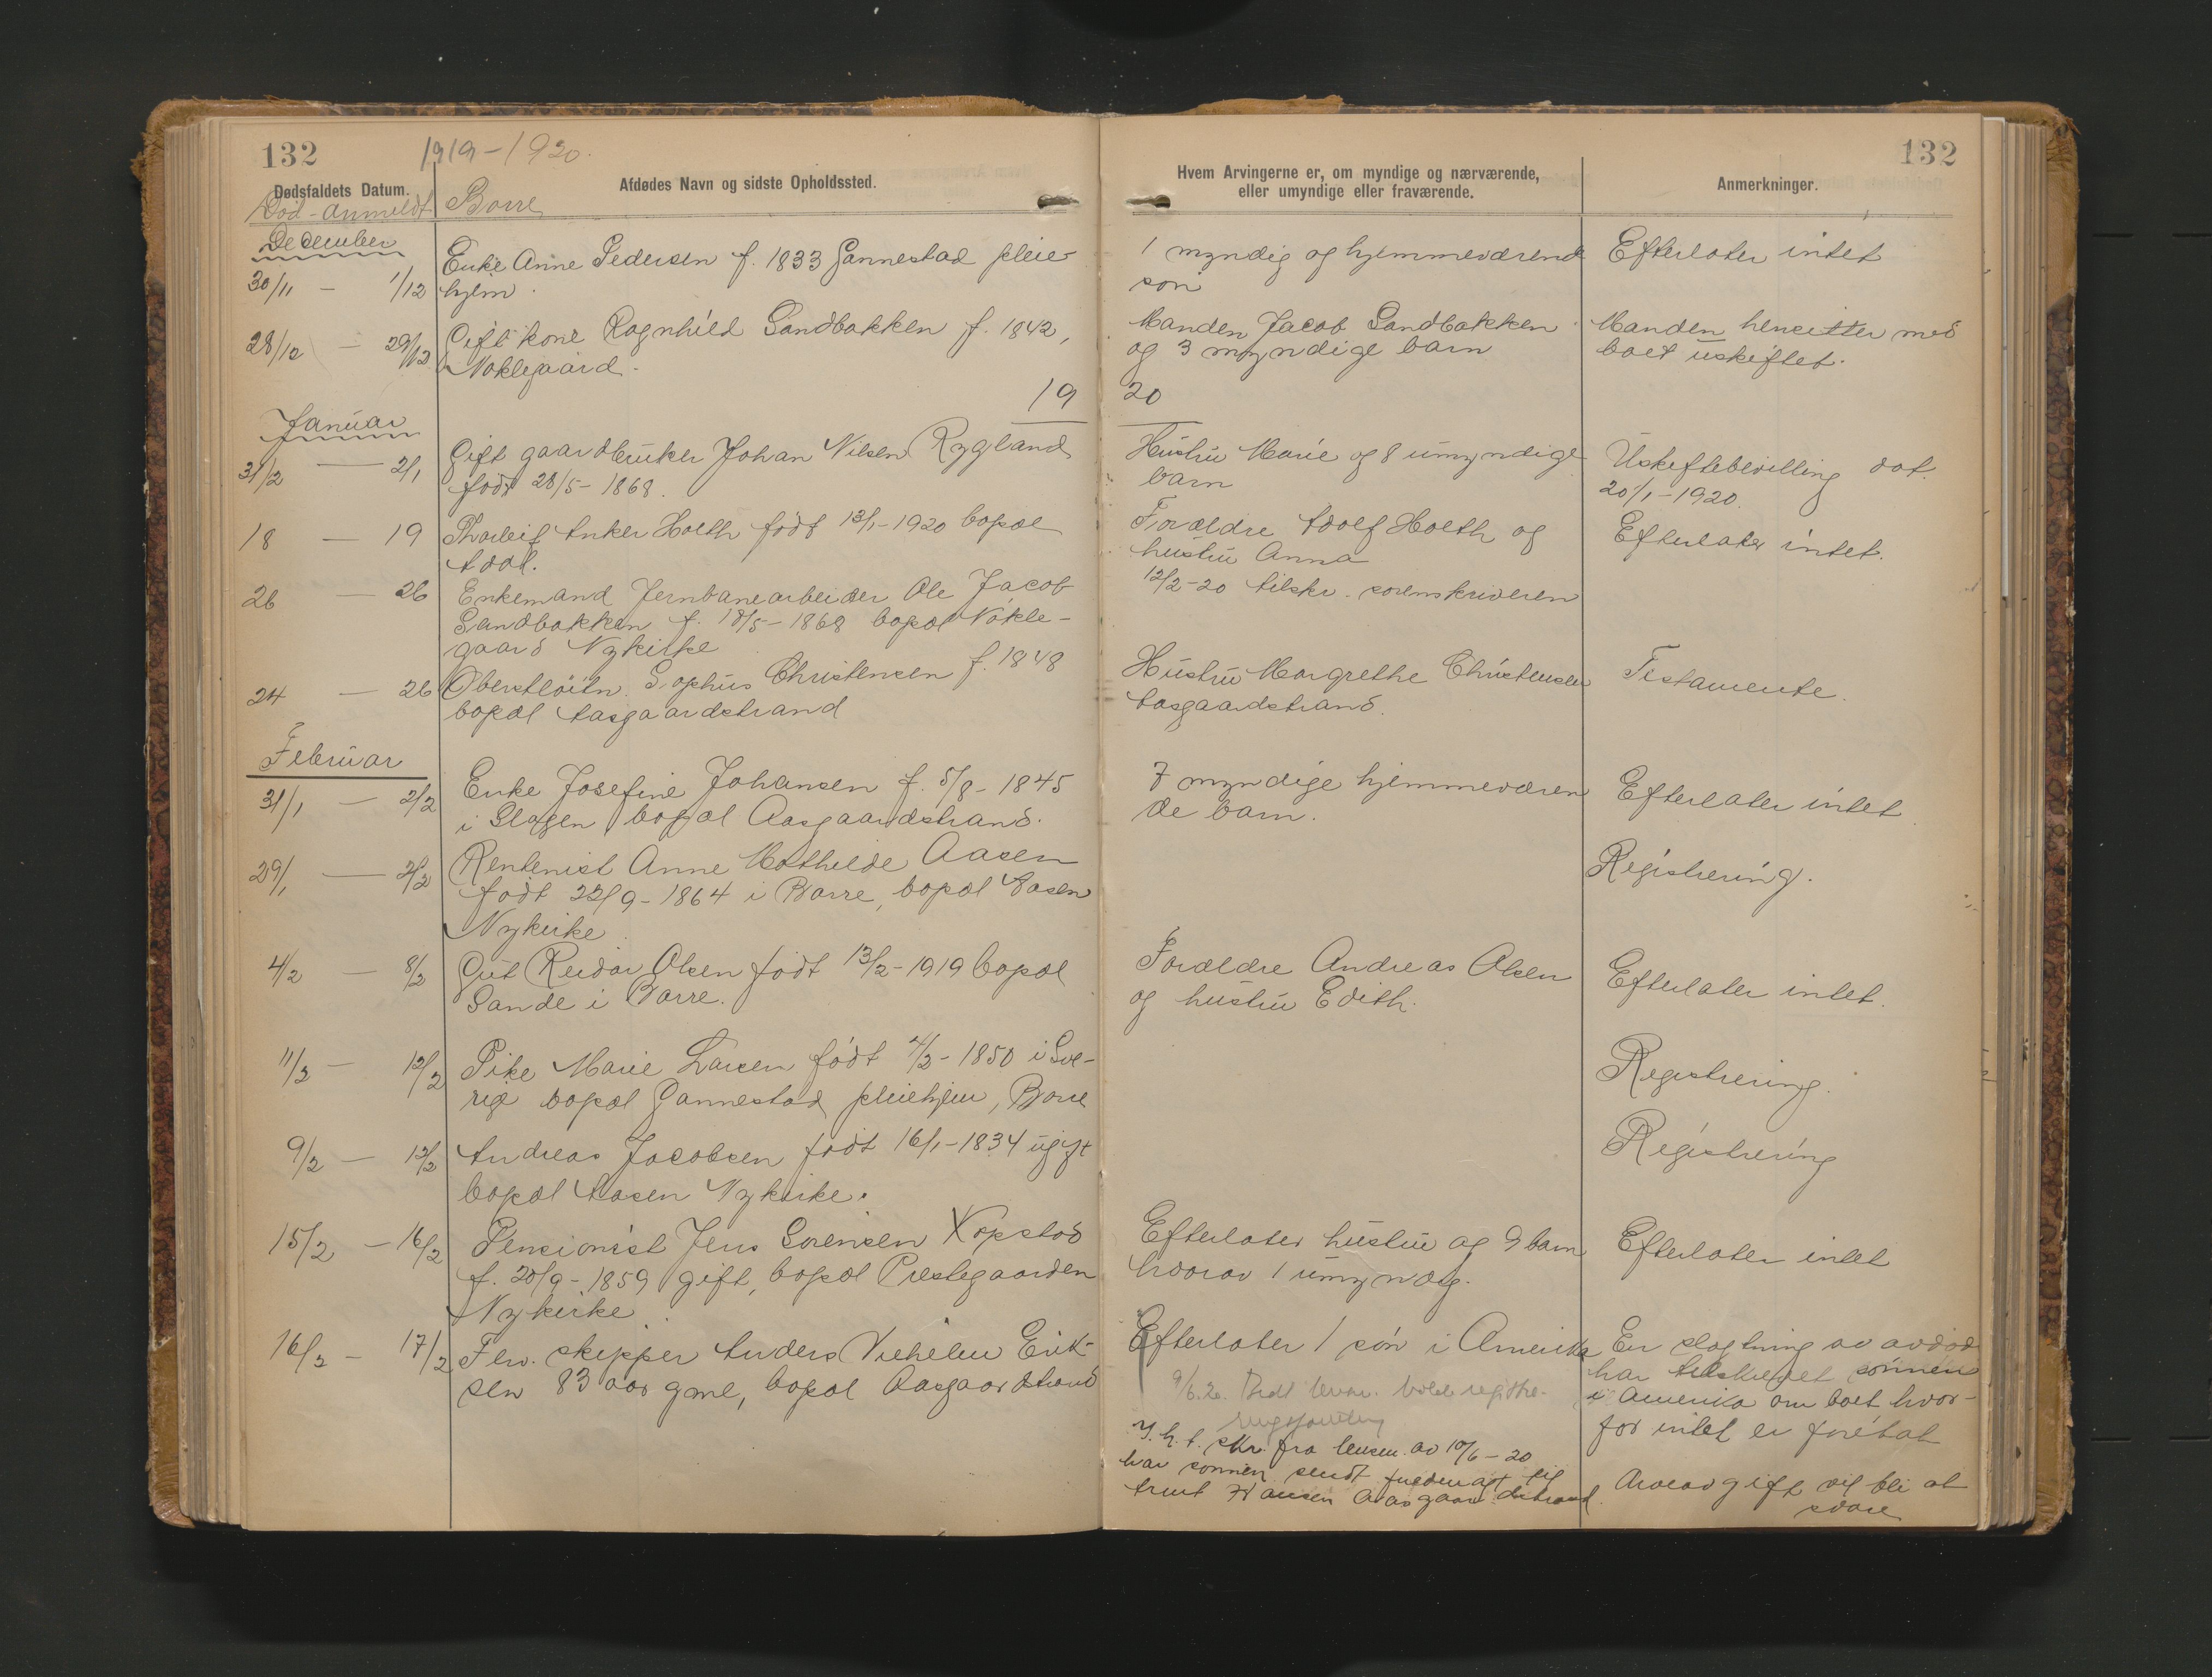 132
1919-1920.
Dødsfaldets Datum.
Afdødes Navn og sidste Opholdssted.
Død - anmeldt
Borre
December
30/11 - 1/12
Enke Anne Pedersen f. 1833 Gannestad pleie-
hjem.
28/12 - 29/12
Gift kone Ragnhild Sandbakken f. 1842,
Nøklegaard.
19
Januar
31/12 - 2/1
Gift gaardbruker Johan Nilsen Rygland
født 28/5-1868.
18 - 19
Thorleif Anker Holth født 13/1-1920 bopæl
26 - 26
Enkemand Jernbanearbeider Ole Jacob
Sandbakken f. 18/5-1868 bopæl Nøkle-
gaard Nykirke
24 - 26
Oberstløitn. Sophus Christensen f. 1848
bopæl Aasgaardstrand
Februar
31/1 - 2/2
Enke Josefine Johansen f. 5/8-1845
i Slagen bopæl Aasgaardstrand.
29/1 - 2/2
Rentenist Anne Mathilde Aasen
født 22/9-1864 i Borre, bopæl Aasen
Nykirke
4/2 - 8/2
Gut Reidar Olsen født 13/2-1919 bopæl
Sande i Borre.
11/2 - 12/2
Pike Marie Larsen født 4/2-1850 i Sve-
rige bopæl Gannestad pleiehjem, Borre
9/2 - 12/2
Andreas Jacobsen født 16/1-1834 ugift
bopæl Aasen Nykirke.
15/2 - 16/2
Pensionist Jens Sørensen Kopstad
f. 20/9-1859 gift, bopæl Prestegaarden
Nykirke.
16/2 - 17/2
Flv. skipper Anders Vilhelm Erik-
sen 83 aar gml, bopæl Aasgaardstrand
132
Hvem Arvingerne er, om myndige og nærværende,
eller umyndige eller fraværende.
Anmerkninger.
1 myndig og hjemmeværend
søn
Efterlater intet
Manden Jacob Sandbakken
og 3 myndige barn
Manden hensitter med
boet uskiftet.
20
Hustru Marie og 8 umyndige
barn
Uskiftebevilling dat.
20/1-1920.
Forældre Adolf Holth og
hustru Anna
Efterlater intet.
12/2-20 tilskr. sorenskriveren
Hustru Margrethe Christensen
Aasgaardstrand.
Testamente.
7 myndige hjemmeværen
de barn.
Efterlater intet
Registrering.
Forældre Andreas Olsen
og hustru Edith.
Efterlater intet.
Registrering.
Registrering
Efterlater hustru og 9 barn
hvorav 1 umyndig.
Efterlater intet
Efterlater 1 søn i Amerika
En slægtning av avdød
har tilskrevet sønnen
i Amerika om boet hvor-
for intet er foretat
9/6.20. Bedt lensm. holde registre-
ringsforretning
I. h. t. skr. fra lensm. av 10/6-20
har sønnen sendt fuldmagt til
Hansen Aasgaardstrand.
Arveavgift vil bli at
svare